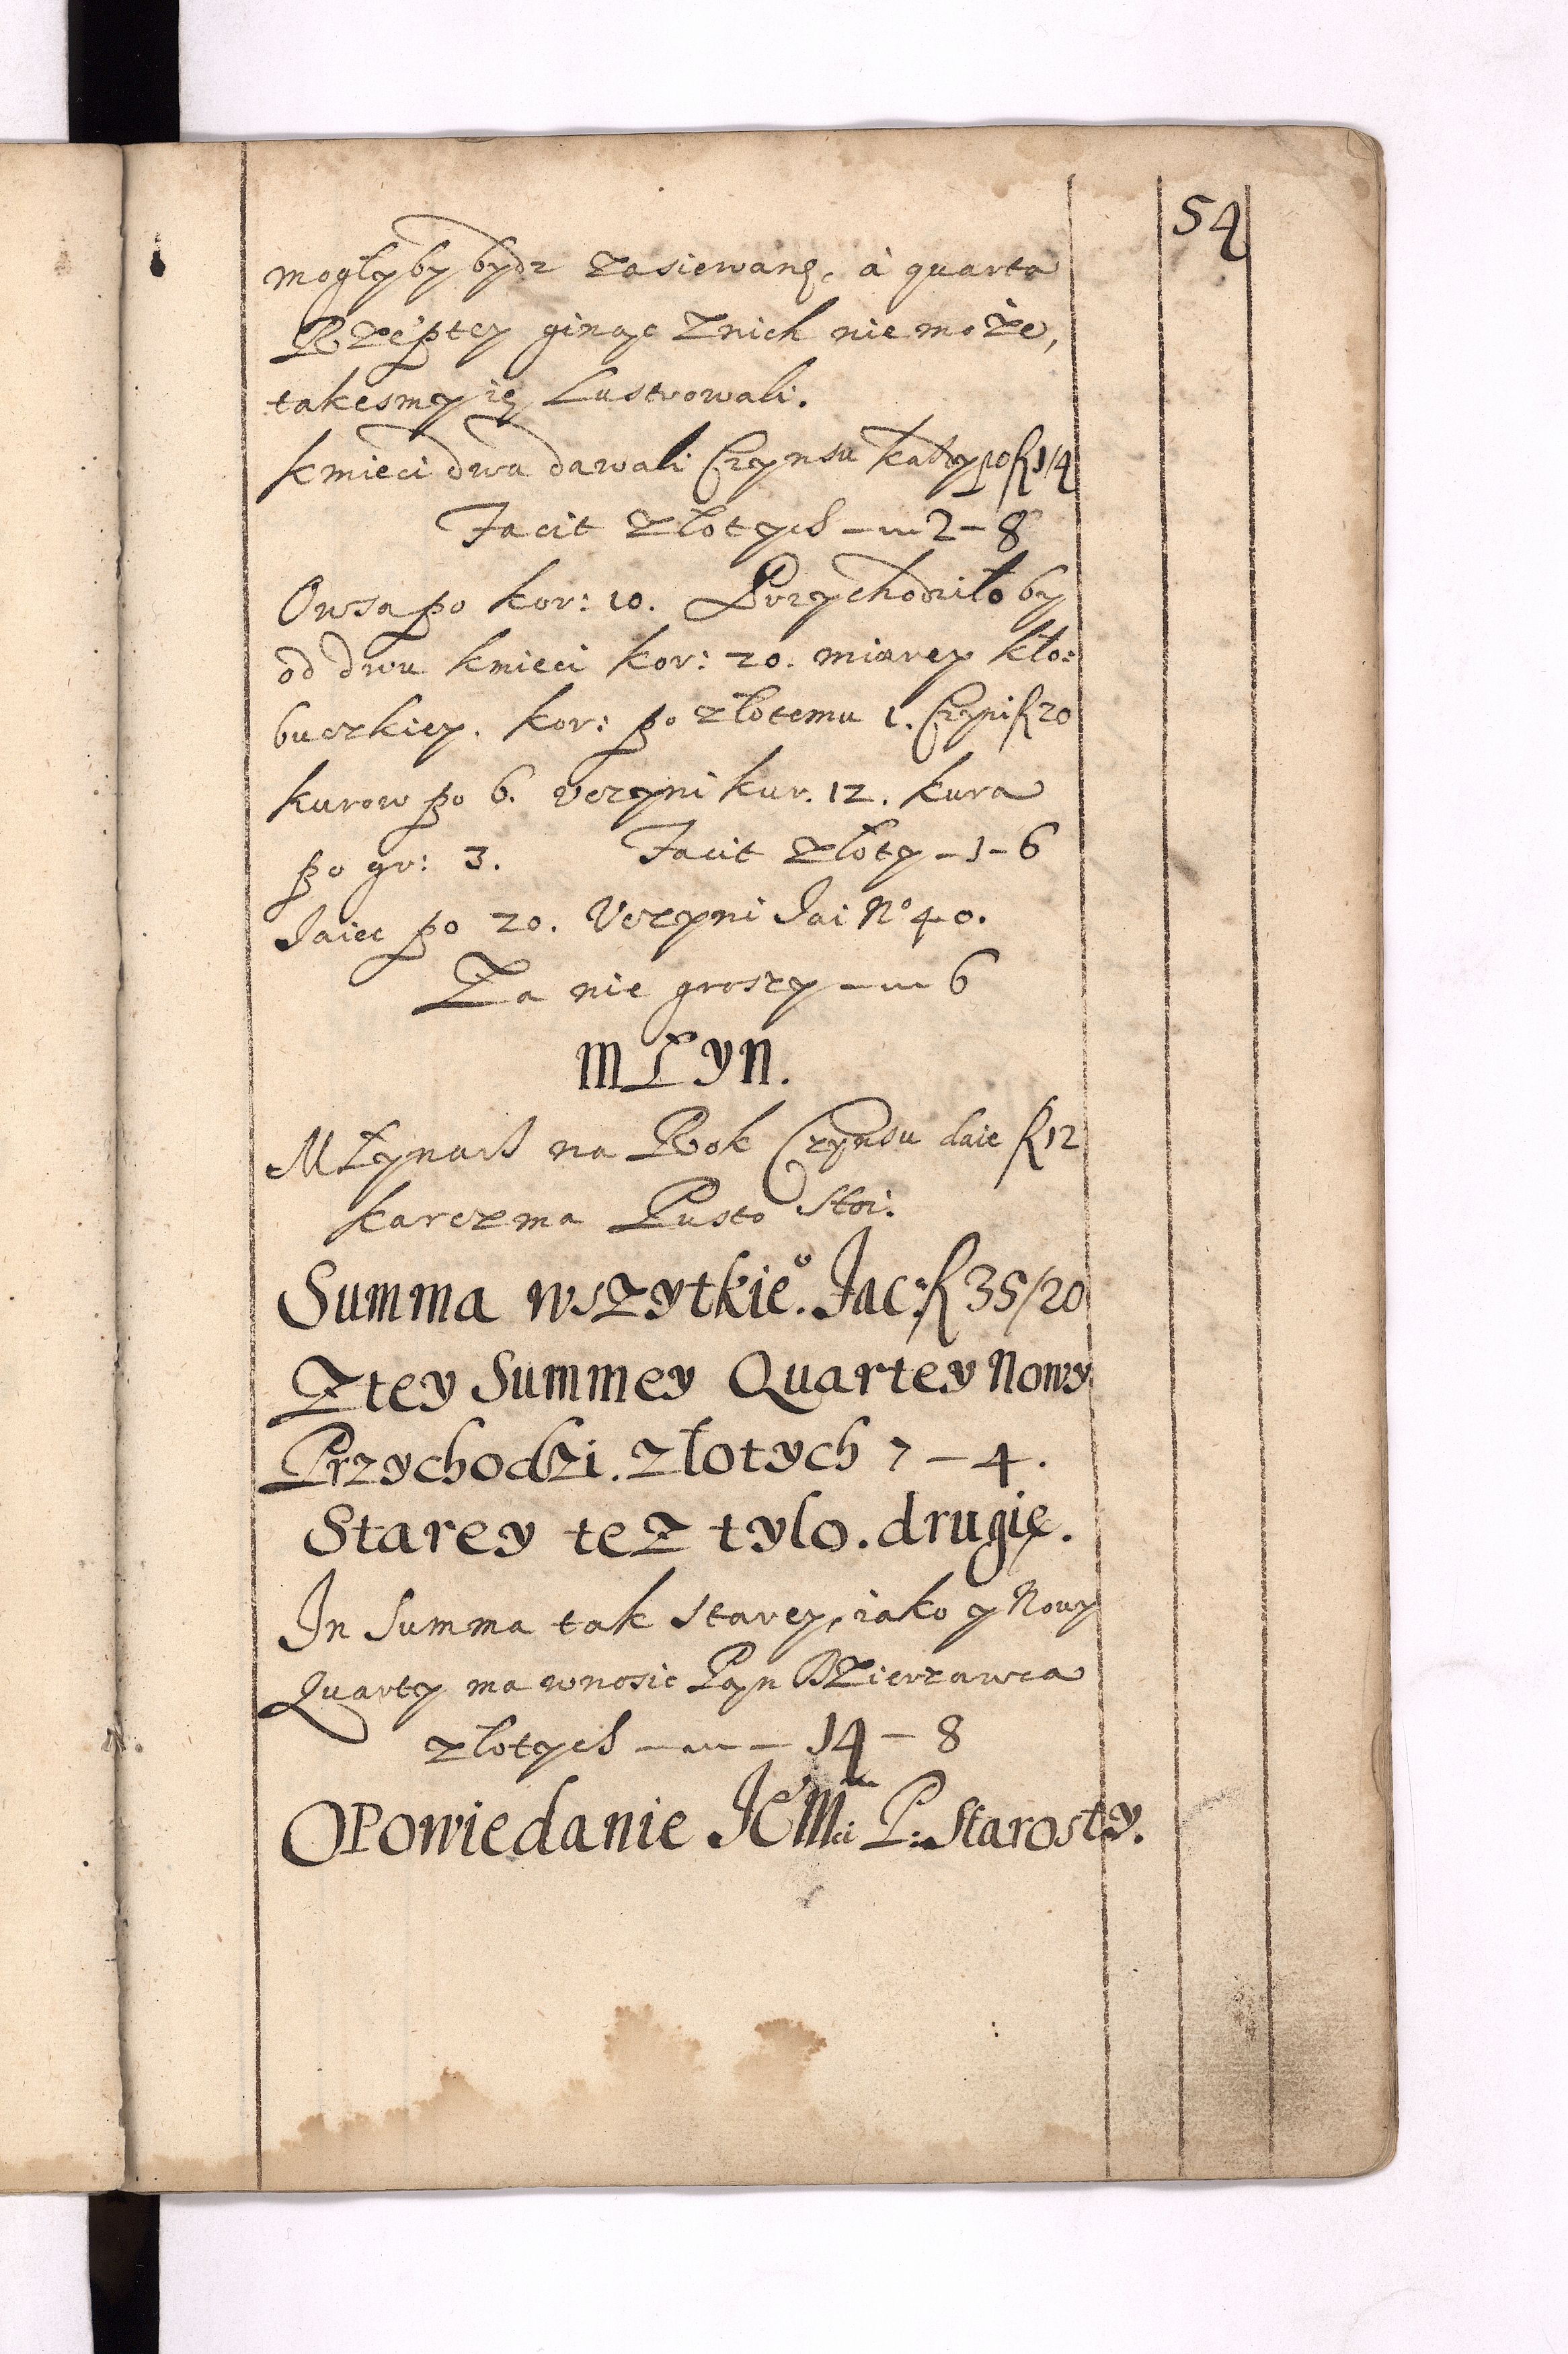 54
mogłyby bydz zasiewanę, à quarta
Rzeptey ginąc znich nie może,
takesmy ię Lustrowali.
kmieci dwa dawali Czynsu każdy po fl 1/4
Facit złotych — 2 – 8
Owsa po kor: 10. Przychodziło by
od dwu kmieci kor: 20. miarey kło:
buczkiey. kor: po złotemu 1. Czyni fl 20
kurow po 6. Vczyni kur. 12. kura
po gr: 3. Facit złoty – 1 – 6
Jaiec po 20. Vczyni Jai No 40.
Za nie groszy — 6
Młyn.
Młynarz na Rok Czynsu daie fl 12
karczma Pusto stoi.
Summa wszytkieo. Fac: fl 35/20
Z tey Summey Quartey Nowy
Przychodzi. złotych 7 – 4.
Starey też tylo. drugię.
In Summa tak starey, iako y Nowy
Quarty ma wnosic Pan Dzierzawca
złotych — 14 – 8
Opowiedanie JEMci P: Starosty.